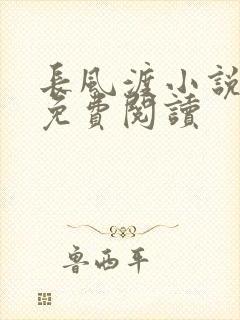 長風渡小說
免費閱讀
魯西平